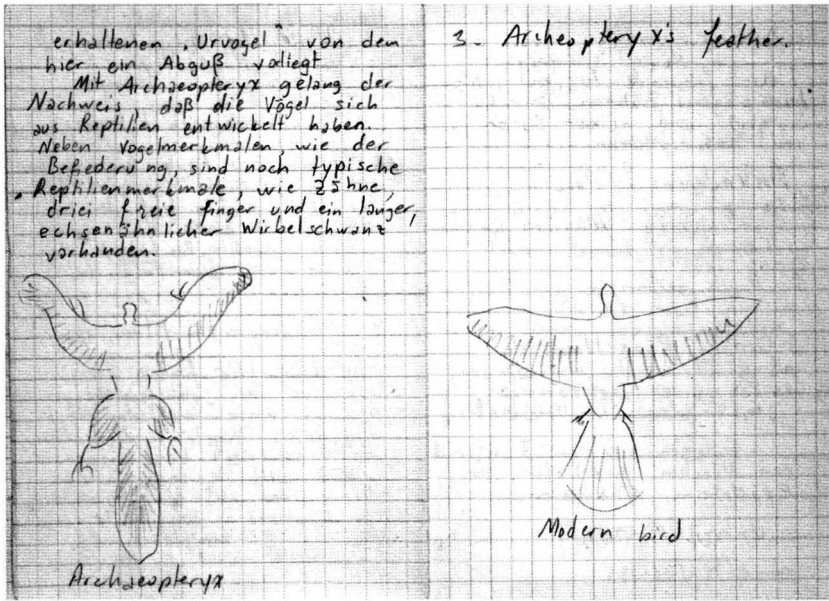 erhaltenen „Urvogel“ von dem
hier ein Abguß vorliegt
Mit Archaeopteryx gelang der
Nachweis, daß die Vögel sich
aus Reptilien entwickelt haben.
Neben Vogelmerkmalen, wie der
Befiederung, sind noch typische
Reptilienmerkmale, wie Zähne,
driei freie finger und ein langer,
echsenähnlicher Wirbelschwanz
vorhanden.
Archaeopteryx
3- Archeopteryx's feather.
Modern bird